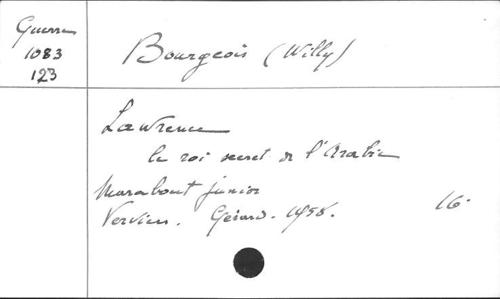 Guerre
1083
123
Bourgeois (Willy)
Lawrence
le roi secret de l'Arabie
Marabout junior
Verviers. Gérard. 1958. 16.